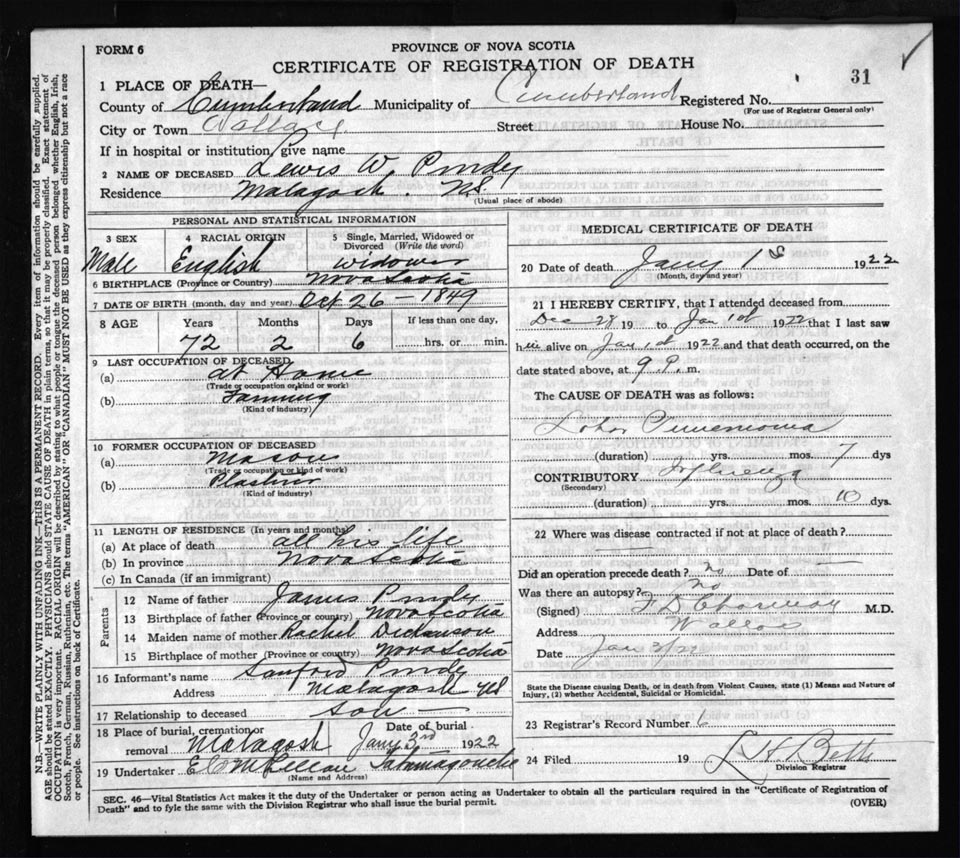 FORM 6
PROVINCE OF NOVA SCOTIA
CERTIFICATE OF REGISTRATION OF DEATH
31
1 PLACE OF DEATH—
County of Cumberland Municipality of Cumberland Registered No.
(For use of Registrar General only)
City or Town Wallace Street House No.
If in hospital or institution, give name
2 NAME OF DECEASED Lewis W. Purdy
Residence Malagash N.S.
(Usual place of abode)
PERSONAL AND STATISTICAL INFORMATION
3 SEX 4 RACIAL ORIGIN 5 Single, Married, Widowed or Divorced (Write the word)
Male English Widower
6 BIRTHPLACE (Province or Country) Nova Scotia
7 DATE OF BIRTH (month, day and year) Oct 26 – 1849
8 AGE Years Months Days If less than one day,
72 2 6 hrs. or min.
9 LAST OCCUPATION OF DECEASED
(a) at Home
(Trade or occupation or kind of work)
(b) Farming
(Kind of industry)
10 FORMER OCCUPATION OF DECEASED
(a) Mason
(Trade or occupation or kind of work)
(b) Plastrer
(Kind of industry)
11 LENGTH OF RESIDENCE (In years and months)
(a) At place of death all his life
(b) In province Nova Scotia
(c) In Canada (if an immigrant)
Parents
12 Name of father James Purdy
13 Birthplace of father (Province or country) Nova Scotia
14 Maiden name of mother Rachel Dickinson
15 Birthplace of mother (Province or country) Nova Scotia
16 Informant's name Sanford Purdy
Address Malagash NS
17 Relationship to deceased son
18 Place of burial, cremation or removal Malagash Date of burial Jany 3rd 1922
19 Undertaker Tatamagouche
(Name and Address)
MEDICAL CERTIFICATE OF DEATH
20 Date of death Jany 1st 1922
(Month, day and year)
21 I HEREBY CERTIFY, that I attended deceased from
Dec 28 19 to Jan 1st 1922 that I last saw
him alive on Jan 1st 1922 and that death occurred, on the
date stated above, at 9 P. m.
The CAUSE OF DEATH was as follows:
Lobar Pneumonia
(duration) yrs. mos. 7 dys
CONTRIBUTORY Influenza
(Secondary)
(duration) yrs. mos. 10 dys.
22 Where was disease contracted if not at place of death?
Did an operation precede death? no Date of —
Was there an autopsy? no
(Signed) M.D.
Address Wallace
Date Jan 3/22
State the Disease causing Death, or in death from Violent Causes, state (1) Means and Nature of
Injury, (2) whether Accidental, Suicidal or Homicidal.
23 Registrar's Record Number
24 Filed 19 Betts
Division Registrar
SEC. 46—Vital Statistics Act makes it the duty of the Undertaker or person acting as Undertaker to obtain all the particulars required in the "Certificate of Registration of
Death" and to fyle the same with the Division Registrar who shall issue the burial permit. (OVER)
N.B.—WRITE PLAINLY WITH UNFADING INK—THIS IS A PERMANENT RECORD. Every item of information should be carefully supplied.
AGE should be stated EXACTLY. PHYSICIANS should STATE CAUSE OF DEATH in plain terms, so that it may be properly classified. Exact statement of
OCCUPATION is very important. RACIAL ORIGIN will be described by stating to what people or tongue the deceased person belonged whether English, Irish,
Scotch, French, German, Russian, Ruthenian, etc. The terms "AMERICAN" OR "CANADIAN" MUST NOT BE USED as they express citizenship but not a race
or people. See instructions on back of Certificate.